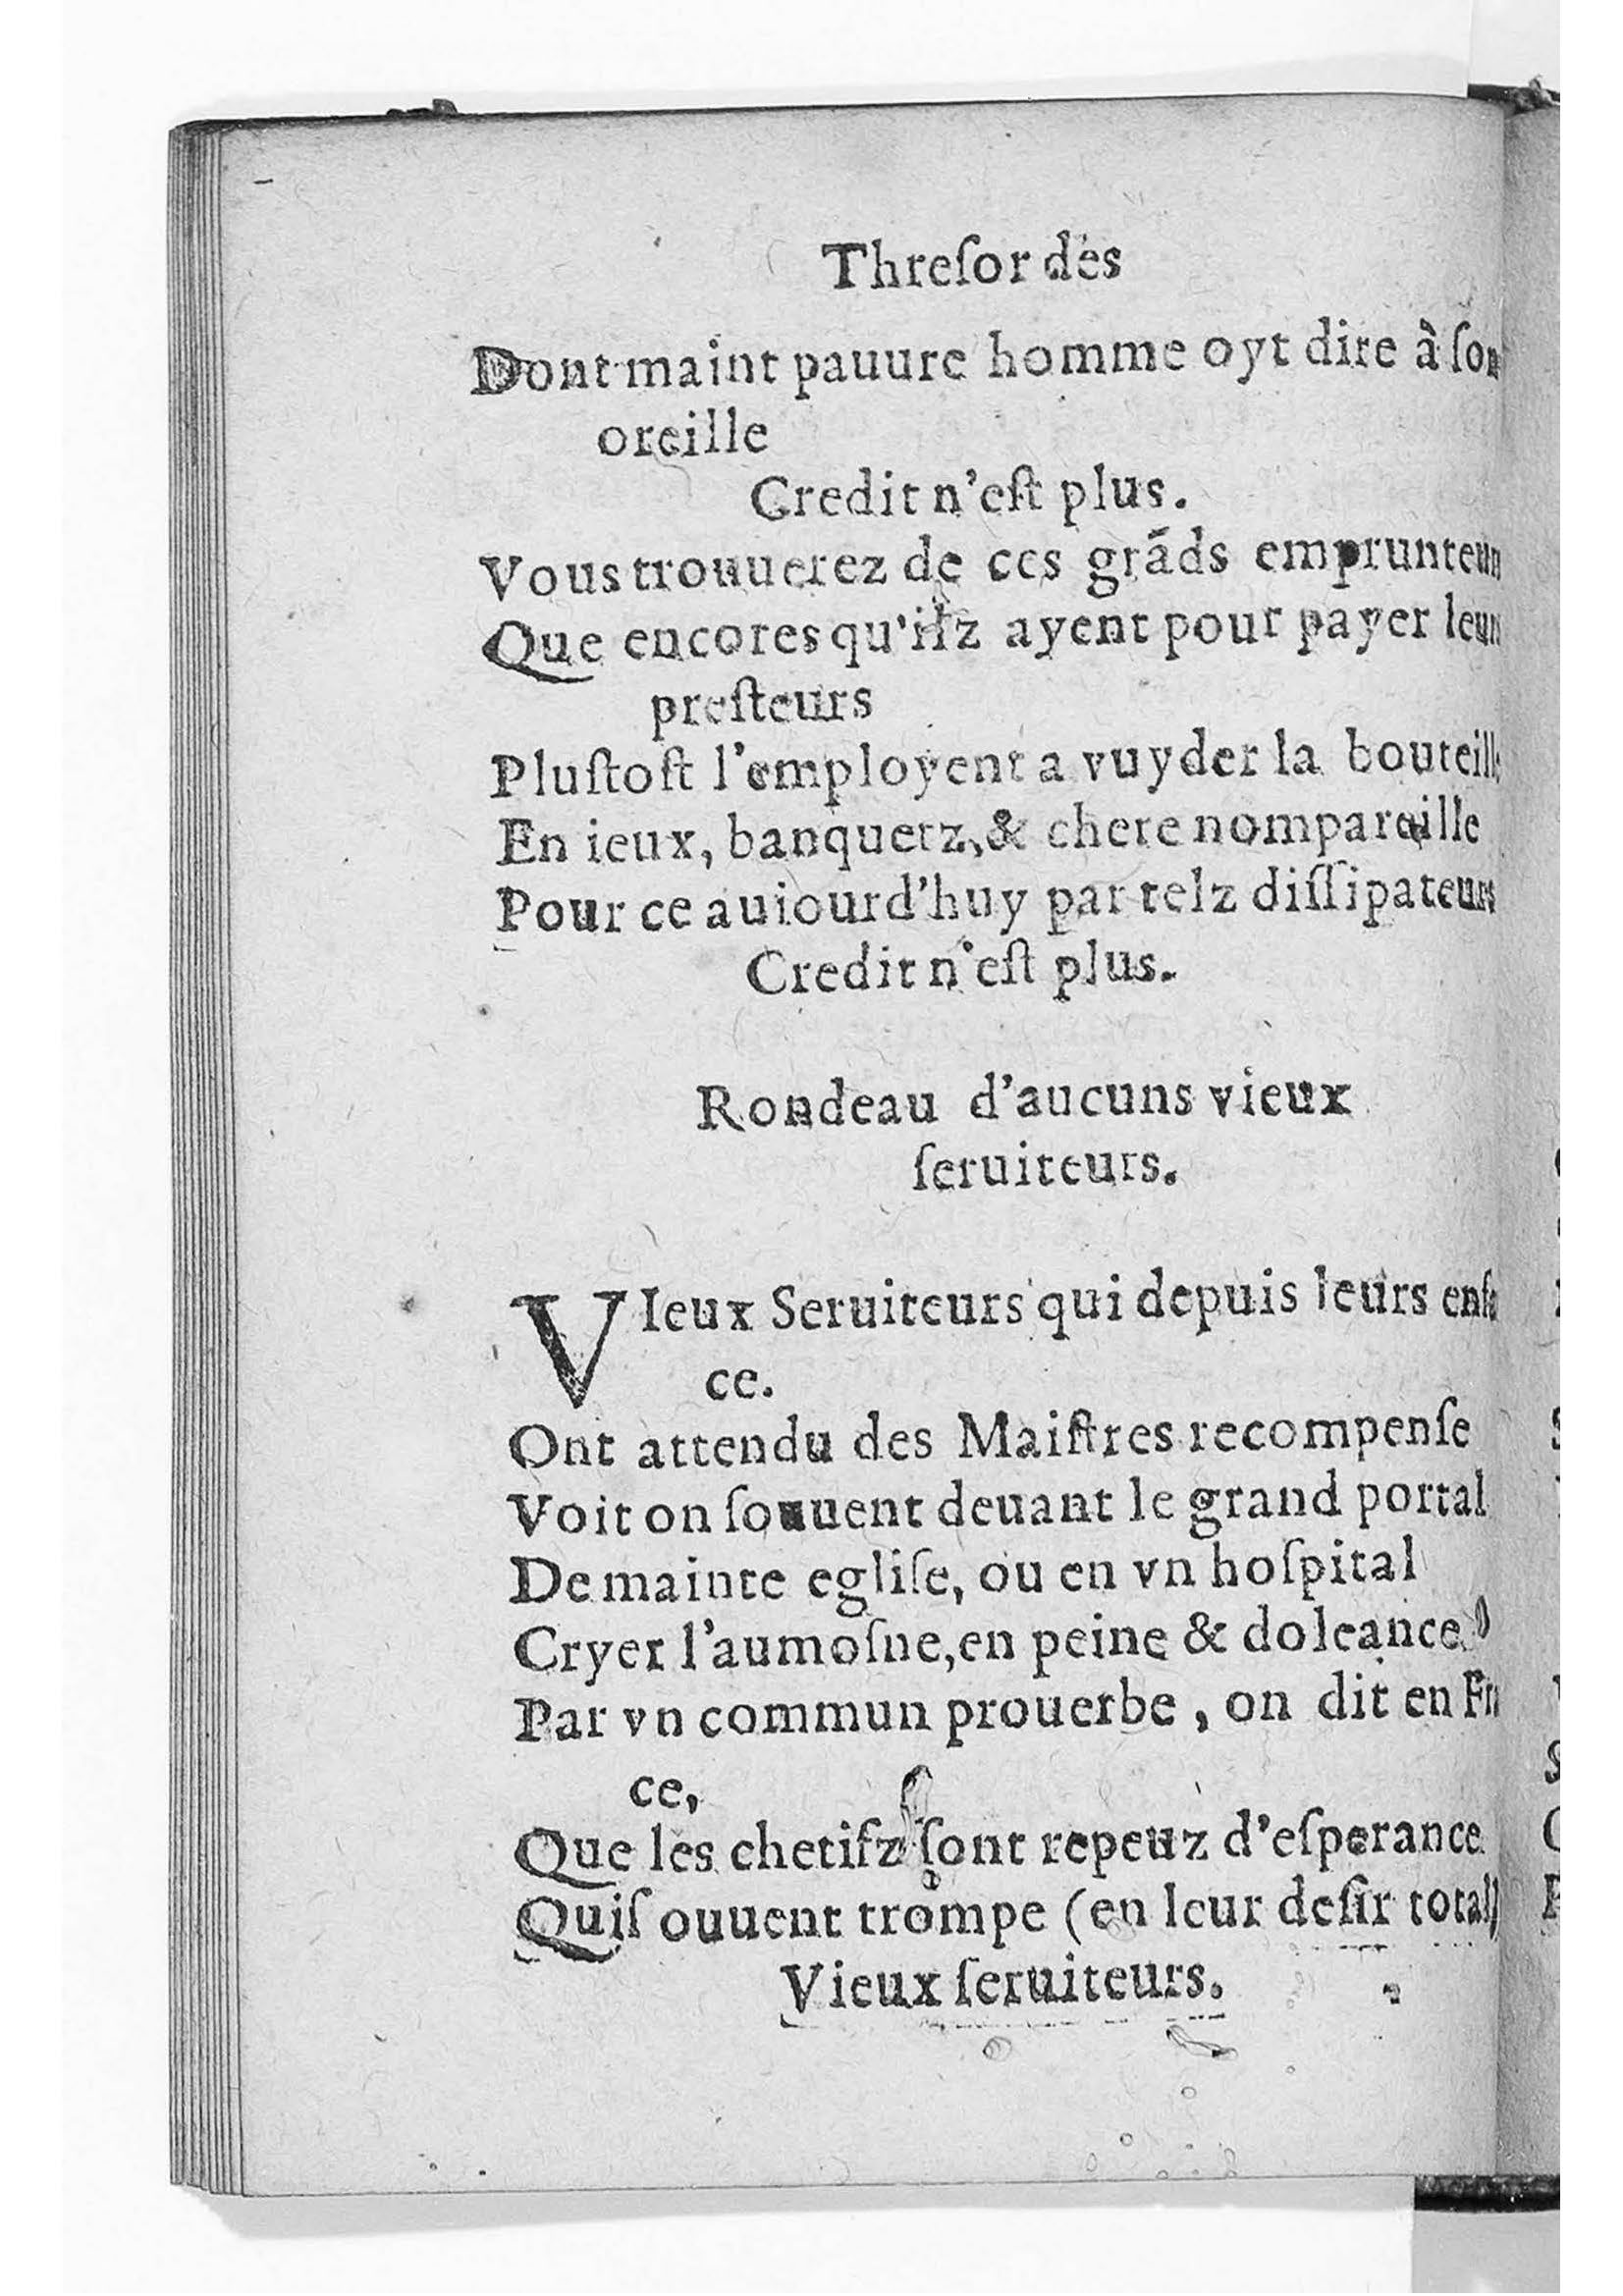 Threſor des
Dont maint pauure homme oyt dire à ſon
oreille
Credit n'eſt plus.
Vous trouuerez de ces grãds emprunteur
Que encores qu'ilz ayent pour payer leurs
preſteurs
Pluſtoſt l'employent a vuyder la bouteille
En ieux, banquetz, & chere nompareille
Pour ce auiourd'huy par telz diſſipateurs
Credit n'eſt plus.
Rondeau d'aucuns vieux
ſeruiteurs.
VIeux Seruiteurs qui depuis leurs enfa
ce.
Ont attendu des Maiſtres recompenſe
Voit on ſouuent deuant le grand portal
De mainte egliſe, ou en vn hoſpital
Cryer l'aumoſne, en peine & doleance
Par vn commun prouerbe, on dit en Fra
ce,
Que les chetifz ſont repeuz d'eſperance
Quiſ ouuent trompe (en leur deſir total)
Vieux ſeruiteurs.